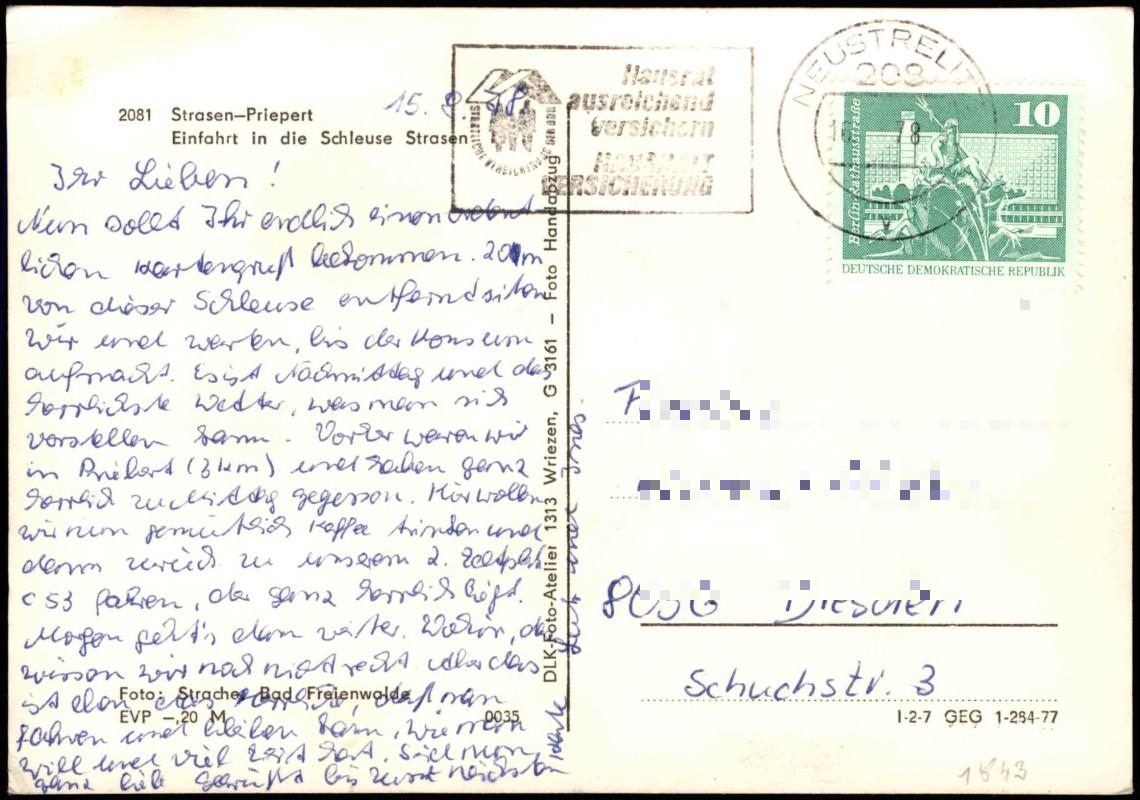 2081 Strasen-Priepert
Einfahrt in die Schleuse Strasen
15. 8. 78
Ihr Lieben!
Nun sollt Ihr endlich einen ordent-
lichen Kartengruß bekommen. 200m
von dieser Schleuse entfernt sitzen
wir und warten, bis der Konsum
aufmacht. Es ist Nachmittag und das
herrlichste Wetter, was man sich
vorstellen kann. Vorher waren wir
in Priebert (3 km) und haben ganz
herrlich zu Mittag gegessen. Hier wollen
wir nun gemütlich Kaffee trinken und
dann zurück zu unserem 2. Zeltplatz
C 53 fahren, der ganz herrlich liegt.
Morgen geht's dann weiter. Wohin, das
wissen wir noch nicht recht. Aber das
ist eben das Herrliche, daß man
fahren und bleiben kann, wie man
will und viel Zeit hat. Seid nun
ganz lieb gegrüßt bis zur nächsten
Karte
Foto: Stracher, Bad Freienwalde
EVP -,20 M
0035
DLK-Foto-Atelier 1313 Wriezen, G 3161 – Foto Handabzug
STAATLICHE VERSICHERUNG DER DDR
Hausrat
ausreichend
versichern
HAUSHALT
VERSICHERUNG
NEUSTRELITZ
208
78
10
Berlin, Rathausstraße
DEUTSCHE DEMOKRATISCHE REPUBLIK
Dresden
Schuchstr. 3
I-2-7 GEG 1-284-77
1843